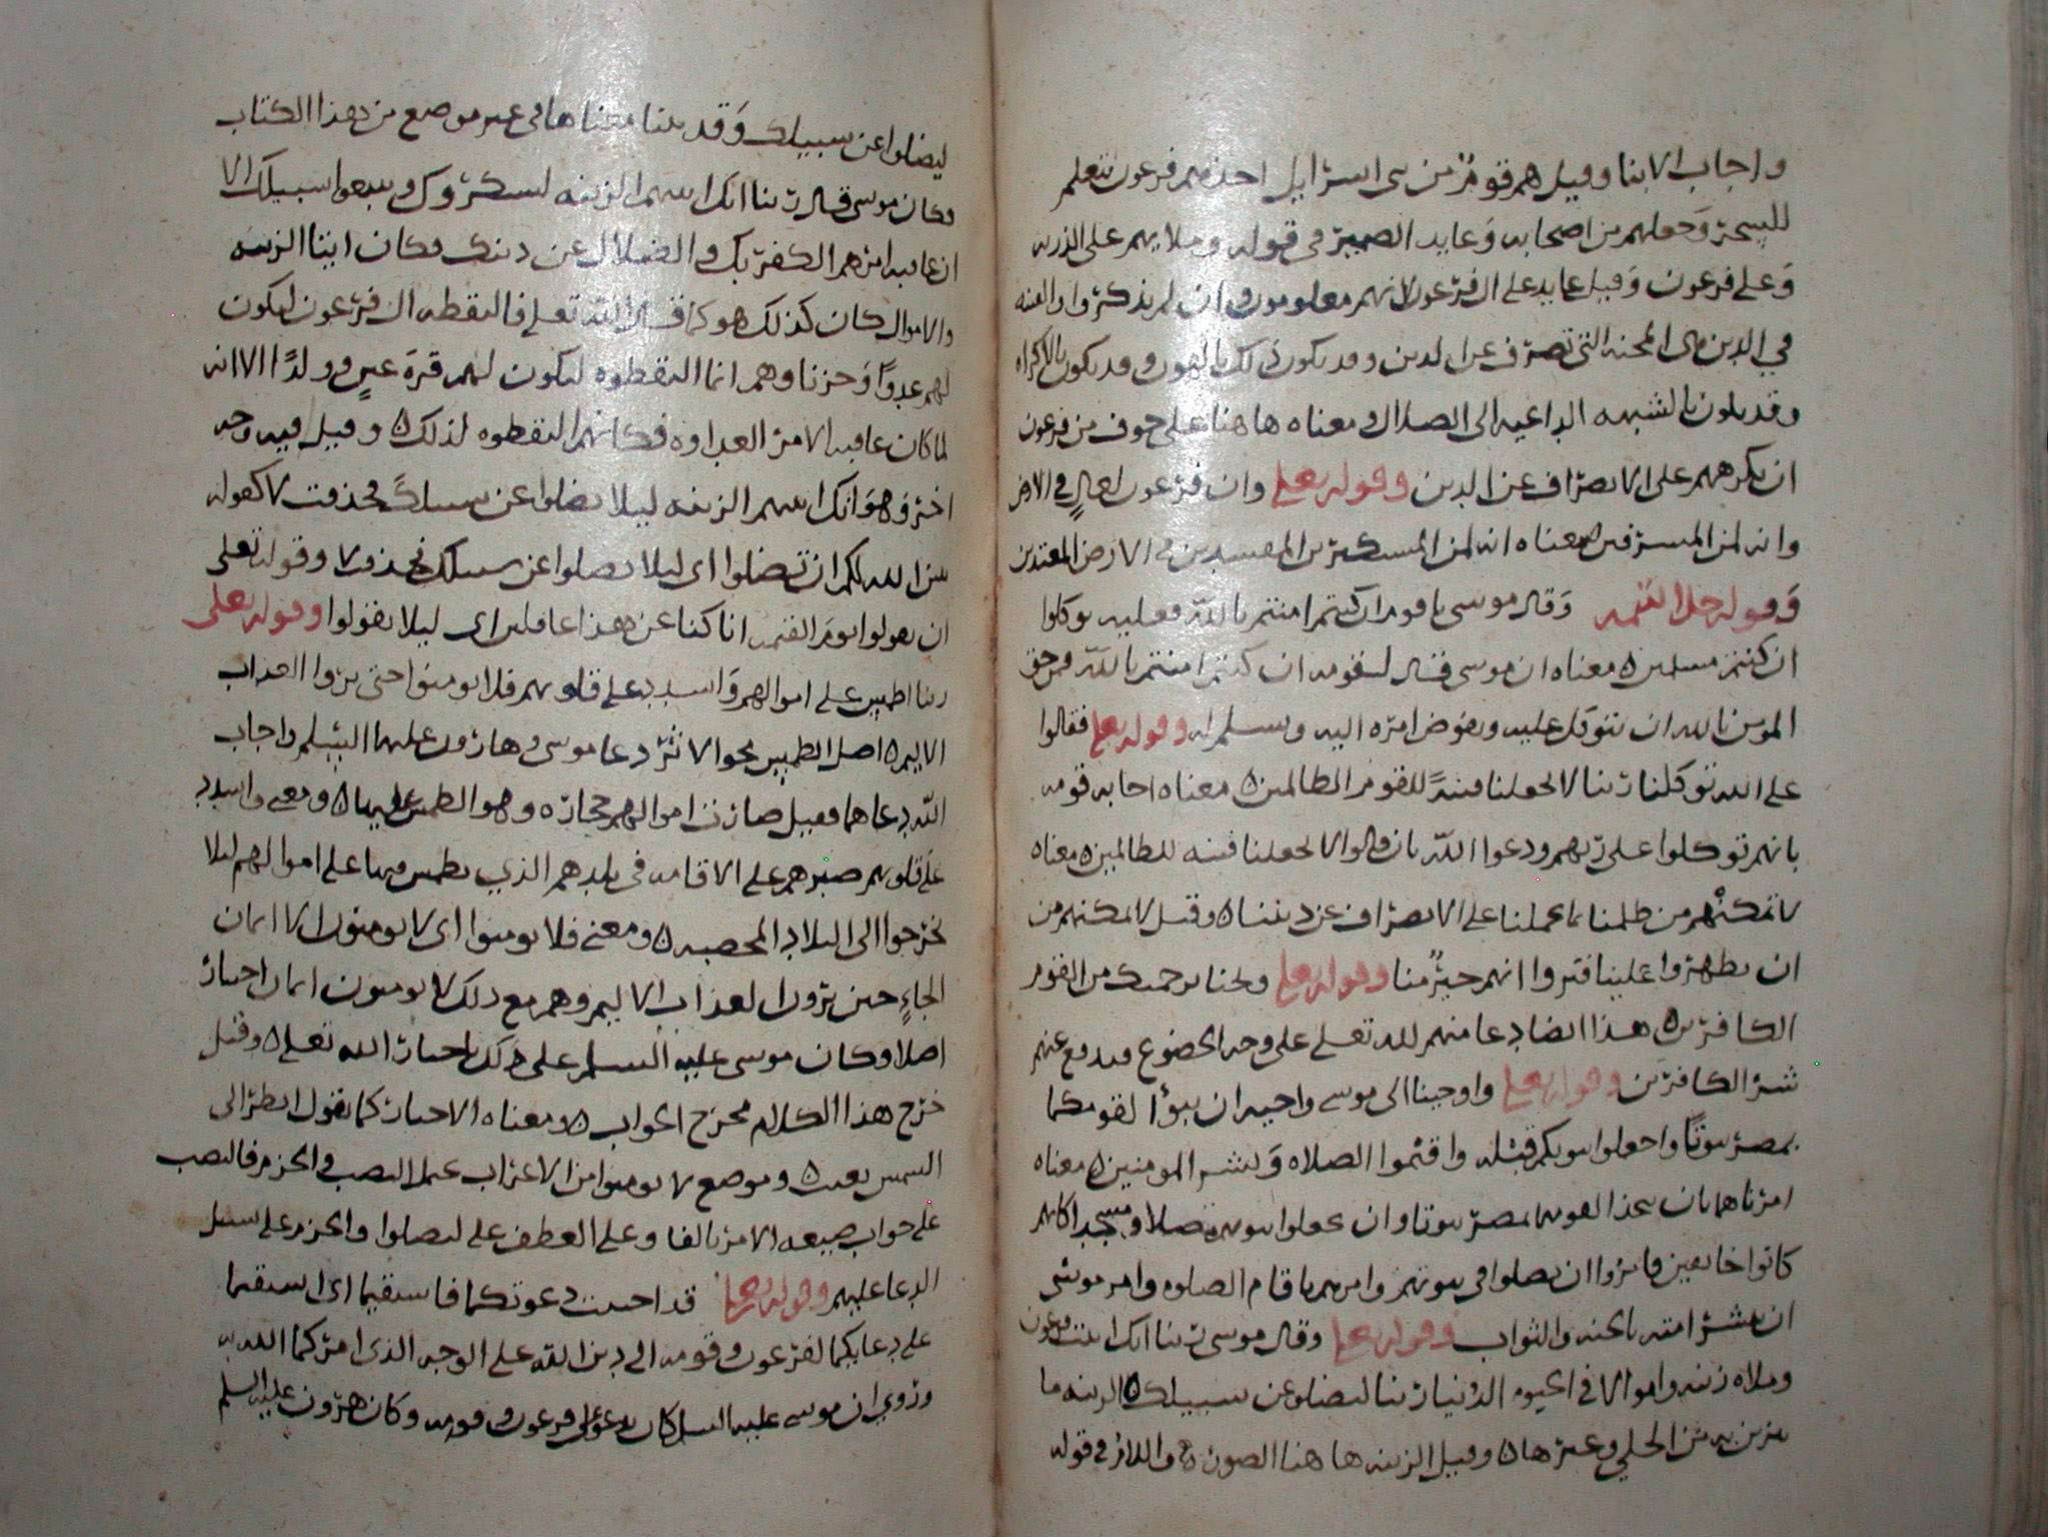 واجاب الابنا وقيل هم قوم من بنى اسرايل اخذهم فرعون لتعلم
للسحر وجعلهم من اصحابه وعايد الضمير فى قوله وملايهم على الذريه
وعلى فرعون وقيل عايد على ال فرعون لانهم معلومون وان لم يذكروا والفتنه
في الدين هى المحنه التى تصرف عن الدين وقد يكون ذلك بالهوى وقد يكون بالاكراه
وقد يكون بالشبهه الداعيه الى الضلال ومعناه هاهنا على خوف من فرعون
ان يكرههم على الانصراف عن الدين وقوله تعلى وان فرعون لعال في الارض
وانه لمن المسرفين معناه انه لمن المستكبرين المفسدين فى الارض المعتدين
وقوله جل اسمه وقال موسى يا قوم ان كنتم امنتم بالله فعليه توكلوا
ان كنتم مسلمين معناه ان موسى قال لقومه ان كنتم امنتم بالله فمن حق
المومن بالله ان يتوكل عليه ويفوض امره اليه ويسلم له وقوله تعلى فقالوا
على الله توكلنا ربنا لا تجعلنا فتنة للقوم الظالمين معناه اجابه قومه
بانهم توكلوا على ربهم ودعوا الله بان قالوا لا تجعلنا فتنه للظالمين معناه
لا تمكنهم من ظلمنا بما يحملنا على الانصراف عن ديننا وقيل لا تمكنهم من
ان يظهروا علينا فتروا انهم خير منا وقوله تعلى ونجنا برحمتك من القوم
الكافرين هذا ايضا دعا منهم لله تعلى على وجه الخضوع فيدفع عنهم
شر الكافرين وقوله تعلى واوحينا الى موسى واخيه ان تبوءا لقومكما
بمصر بيوتا واجعلوا بيوتكم قبله واقيموا الصلاه وبشر المومنين معناه
امرناهما بان يتخذا لقومهما بمصر بيوتا وان يجعلوا بيوتهم مصلا ومسجدا لانهم
كانوا خايفين فامروا ان يصلوا فى بيوتهم وامرهم باقام الصلوه وامر موسى
ان يبشر امته بالجنه والثواب وقوله تعلى وقال موسى ربنا انك اتيت فرعون
وملاه زينه واموالا فى الحيوه الدنيا ربنا ليضلوا عن سبيلك الزينه ما
يتزين به من الحلي وغيرها وقيل الزينه هاهنا الصوره واللام في قوله
ليضلوا عن سبيلك وقد بينا معناها فى غير موضع من هذا الكتاب
فكان موسى قال ربنا انك اتيتهم الزينه ليشكروك ويتبعوا سبيلك الا
ان عاقبه امرهم الكفر بك والضلال عن دينك فكان ايتا الزينه
والاموال كان كذلك هو كما قال الله تعلى فالتقطه ال فرعون ليكون
لهم عدوا وحزنا وهم انما التقطوه ليكون لهم قرة عين وولدا الا انه
لما كان عاقبه الامر العداوه فكانهم التقطوه لذلك وقيل فيه وجه
اخر وهو انك اتيتهم الزينه ليلا يضلوا عن سبيلك فحذفت لا كقوله
يبين الله لكم ان تضلوا اى ليلا تضلوا عن سبيلك فحذف لا وقوله تعلى
ان تقولوا يوم القيمه انا كنا عن هذا غافلين اى ليلا تقولوا وقوله تعلى
ربنا اطمس على اموالهم واشدد على قلوبهم فلا يومنوا حتى يروا العذاب
الاليم اصل الطمس محو الاثر دعا موسى وهارون عليهما السلم واجاب
الله دعاهما فقيل صارت اموالهم حجاره وهو الطمس عليها ومعنى واشدد
على قلوبهم صبرهم على الاقامه فى بلدهم الذي تطمس فيها على اموالهم ليلا
يخرجوا الى البلاد المخصبه ومعنى فلا يومنوا اى لا يومنون الا ايمان
الجاء حين يرون العذاب الاليم وهم مع ذلك لا يومنون ايمان اختيار
اصلا وكان موسى عليه السلم على ذلك باخبار الله تعلى وقيل
خرج هذا الكلام مخرج الجواب ومعناه الاخبار كما تقول انظر الى
الشمس تغيب وموضع لا يومنوا من الاعراب يحتمل النصب والجزم فالنصب
على جواب صيغه الامر بالفا وعلى العطف على ليضلوا والجزم على سبيل
الدعا عليهم وقوله تعلى قد اجيبت دعوتكما فاستقيما اى استقيما
على دعايكما لفرعون وقومه الى دين الله على الوجه الذى امركما الله به
وروي ان موسى عليه السلم كان يدعو على فرعون وقومه وكان هرون عليه السلم